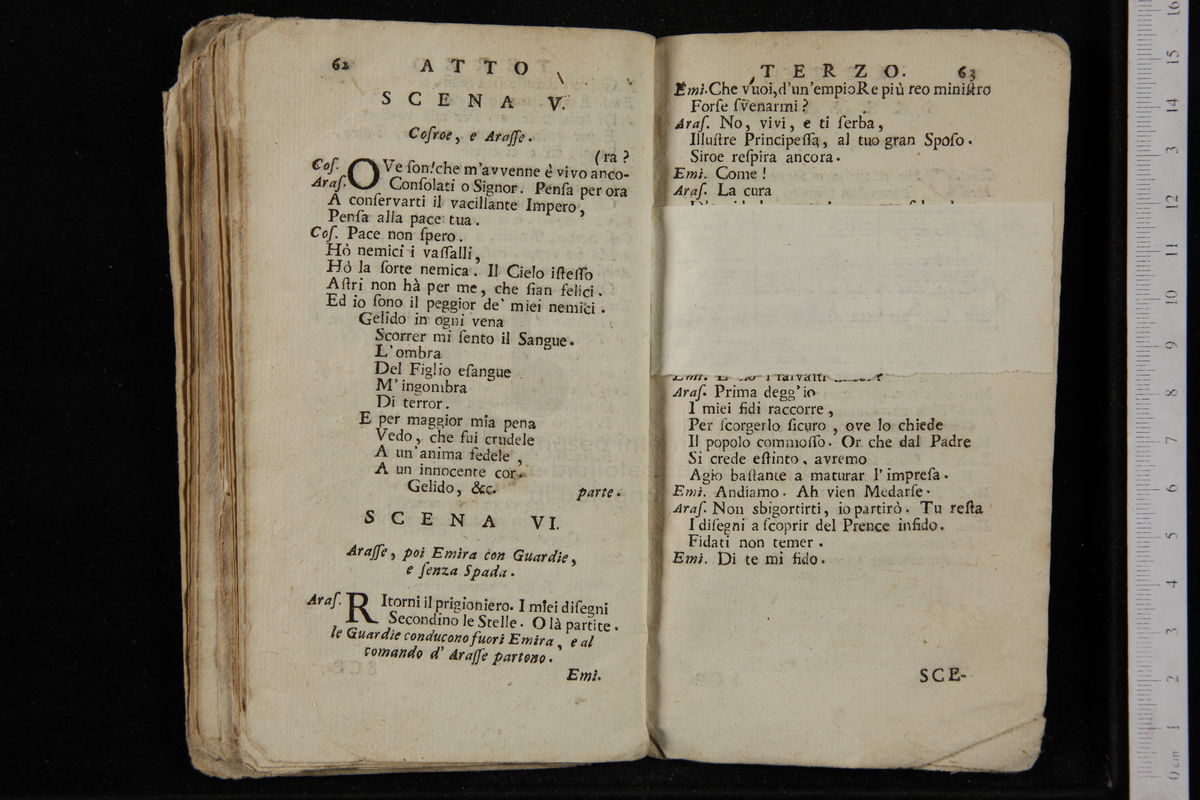 62 ATTO
SCENA V.
Coſroe, e Araſſe.
(ra?
Coſ. OVe ſon! che m'avvenne è vivo anco-
Araſ. Conſolati o Signor. Penſa per ora
A conſervarti il vacillante Impero,
Penſa alla pace tua.
Coſ. Pace non ſpero.
Hò nemici i vaſſalli,
Hò la ſorte nemica. Il Cielo iſteſſo
Aſtri non hà per me, che ſian felici.
Ed io ſono il peggior de' miei nemici.
Gelido in ogni vena
Scorrer mi ſento il Sangue.
L'ombra
Del Figlio eſangue
M'ingombra
Di terror.
E per maggior mia pena
Vedo, che fui crudele
A un'anima fedele,
A un innocente cor.
Gelido, &c. parte.
SCENA VI.
Araſſe, poi Emira con Guardie,
e ſenza Spada.
Araſ. RItorni il prigioniero. I miei diſegni
Secondino le Stelle. O là partite.
le Guardie conducono fuori Emira, e al
comando d' Araſſe partono.
Emi.
TERZO. 63
Emi. Che vuoi, d'un'empio Re più reo miniſtro
Forſe ſvenarmi?
Araſ. No, vivi, e ti ſerba,
Illuſtre Principeſſa, al tuo gran Spoſo.
Siroe reſpira ancora.
Emi. Come!
Araſ. La cura
Araſ. Prima degg'io
I miei fidi raccorre,
Per ſcorgerlo ſicuro, ove lo chiede
Il popolo commoſſo. Or che dal Padre
Si crede eſtinto, avremo
Agio baſtante a maturar l'impreſa.
Emi. Andiamo. Ah vien Medarſe.
Araſ. Non sbigortirti, io partirò. Tu reſta
I diſegni a ſcoprir del Prence infido.
Fidati non temer.
Emi. Di te mi fido.
SCE-